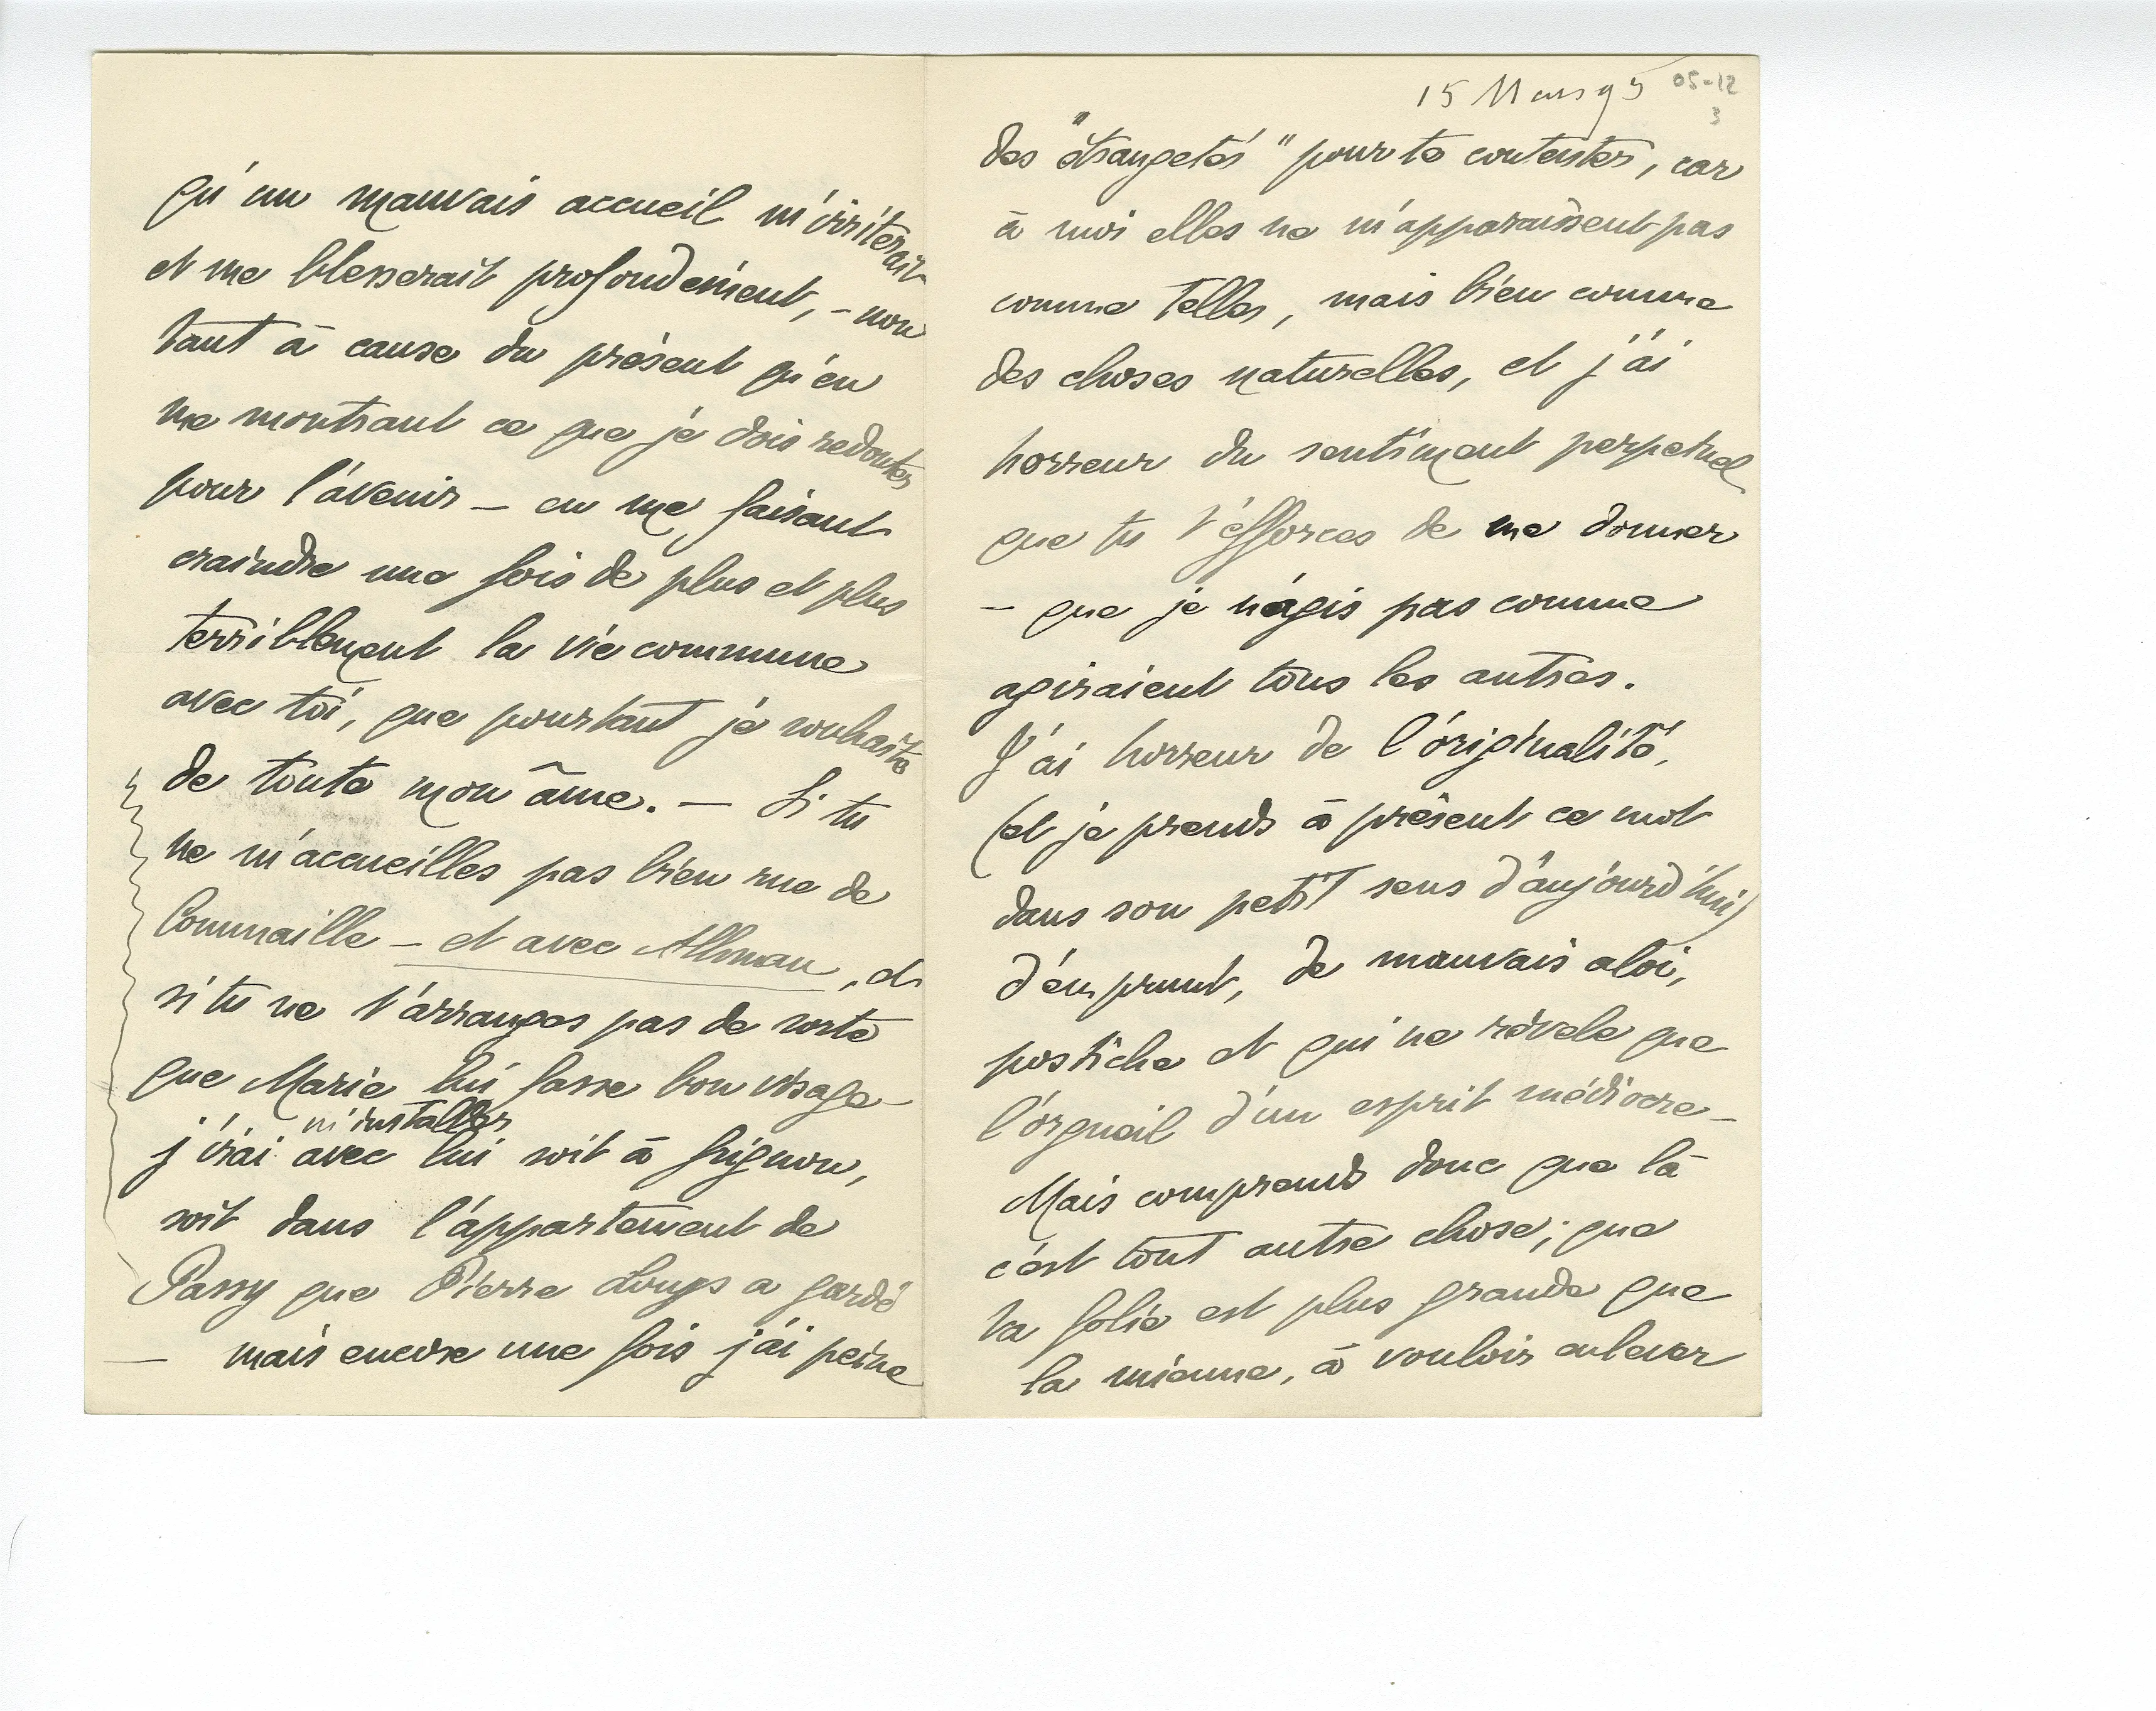 qu'un mauvais accueil m'irriterait
et me blesserait profondément, – non
tant à cause du présent qu'en
me montrant ce que je dois redouter
pour l'avenir – en me faisant
craindre une fois de plus et plus
terriblement la vie commune
avec toi, que pourtant je souhaite
de toute mon âme. – Si tu
ne m'accueilles pas bien rue de
Commaille – et avec Athman, et
si tu ne t'arranges pas de sorte
que Marie lui fasse bon visage
m'installer
j'irai avec lui soit à Grignon,
soit dans l'appartement de
Passy que Pierre Louys a gardé
– mais encore une fois j'ai peine
15 Mars 95
05-12
3
des "étrangetés" pour te contenter, car
à moi elles ne m'apparaissent pas
comme telles, mais bien comme
des choses naturelles, et j'ai
horreur du sentiment perpetuel
que tu t'efforces de me donner
– que je n'agis pas comme
agiraient tous les autres.
J'ai horreur de l'originalité,
(et je prends à présent ce mot
dans son petit sens d'aujourd'hui)
d'emprunt, de mauvais aloi,
postiche et qui ne révèle que
l'orgueil d'un esprit médiocre –
Mais comprends donc que là
c'est tout autre chose; que
ta folie est plus grande que
la mienne, à vouloir enlever